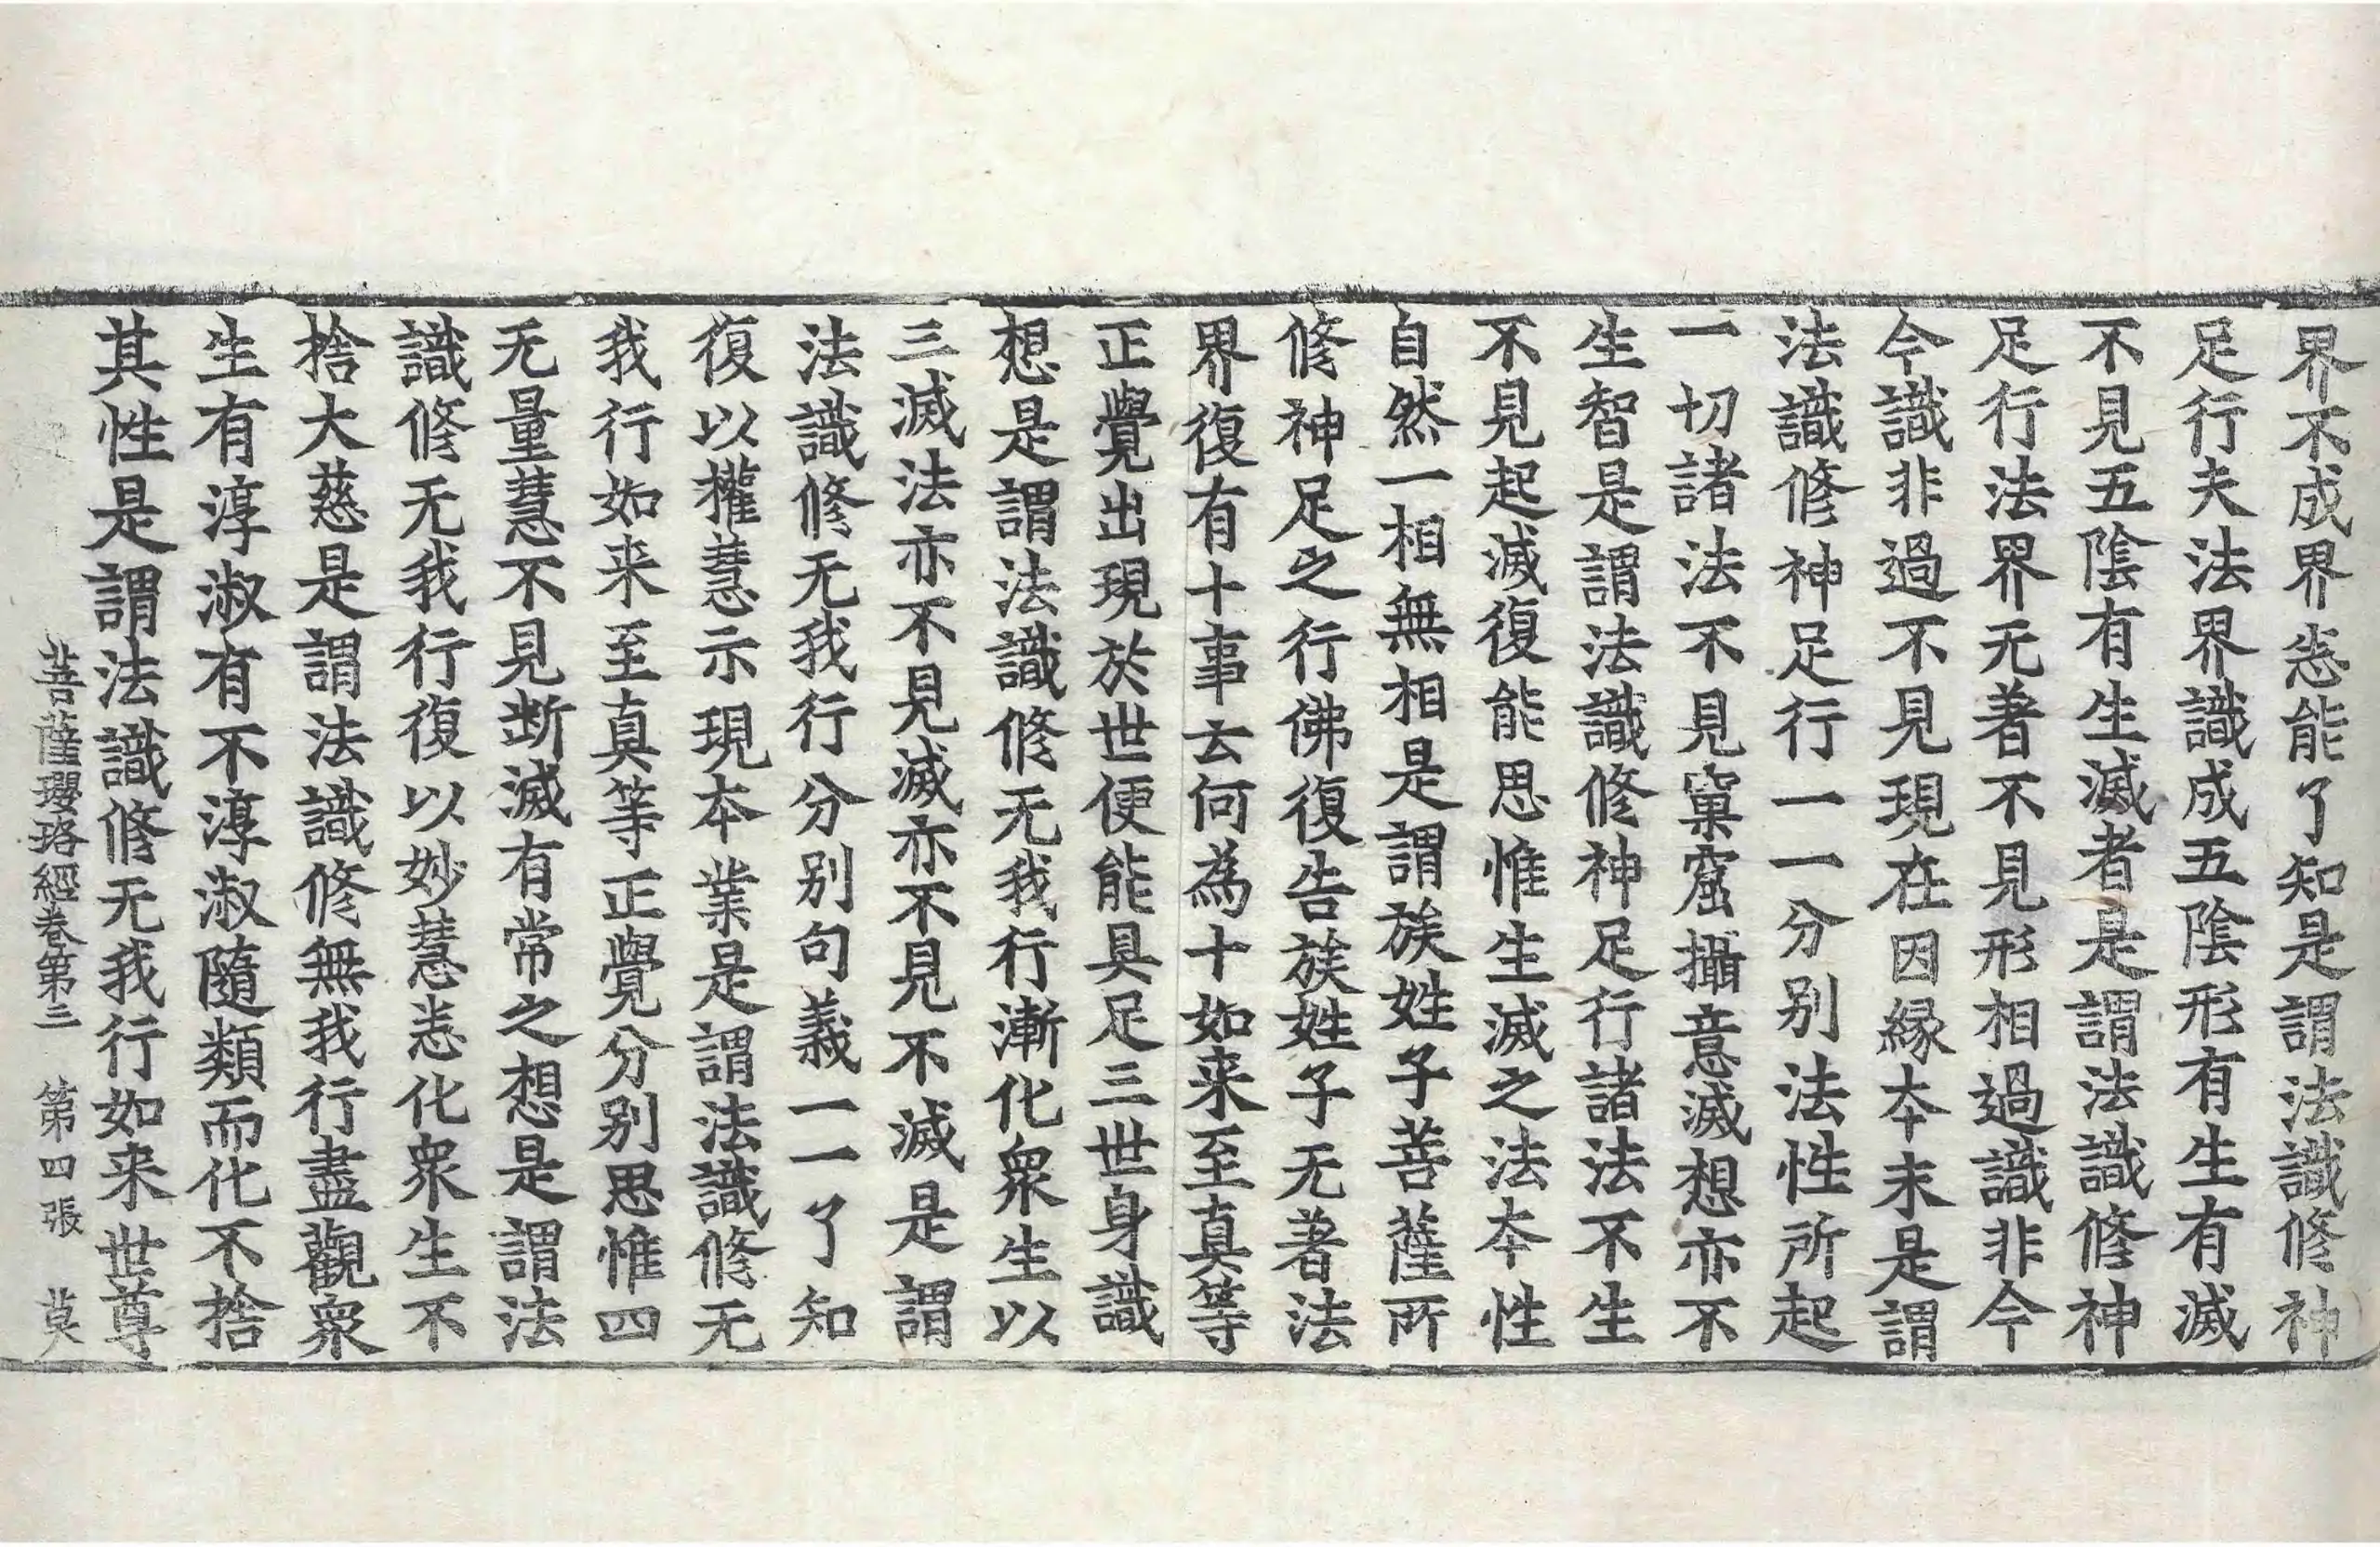 界不成界悉能了知是謂法識修神
足行夫法界識成五陰形有生有滅
不見五陰有生滅者是謂法識修神
足行法界无著不見形相過識非今
今識非過不見現在因縁夲末是謂
法識修神足行一一分别法性所起
一切諸法不見窠窟攝意滅想亦不
生智是謂法識修神足行諸法不生
不見起滅復能思惟生滅之法夲性
自然一相無相是謂族姓子菩薩所
修神足之行佛復告族姓子无著法
界復有十事云何為十如来至真等
正覺出現於世便能具足三世身識
想是謂法識修无我行漸化衆生以
三滅法亦不見滅亦不見不滅是謂
法識修无我行分别句義一一了知
復以權慧示現夲業是謂法識修无
我行如来至真等正覺分别思惟四
无量慧不見断滅有常之想是謂法
識修无我行復以妙慧悉化衆生不
捨大慈是謂法識修無我行盡觀衆
生有淳淑有不淳淑隨類而化不捨
其性是謂法識修无我行如来世尊
菩薩瓔珞經卷第三　第四張　莫